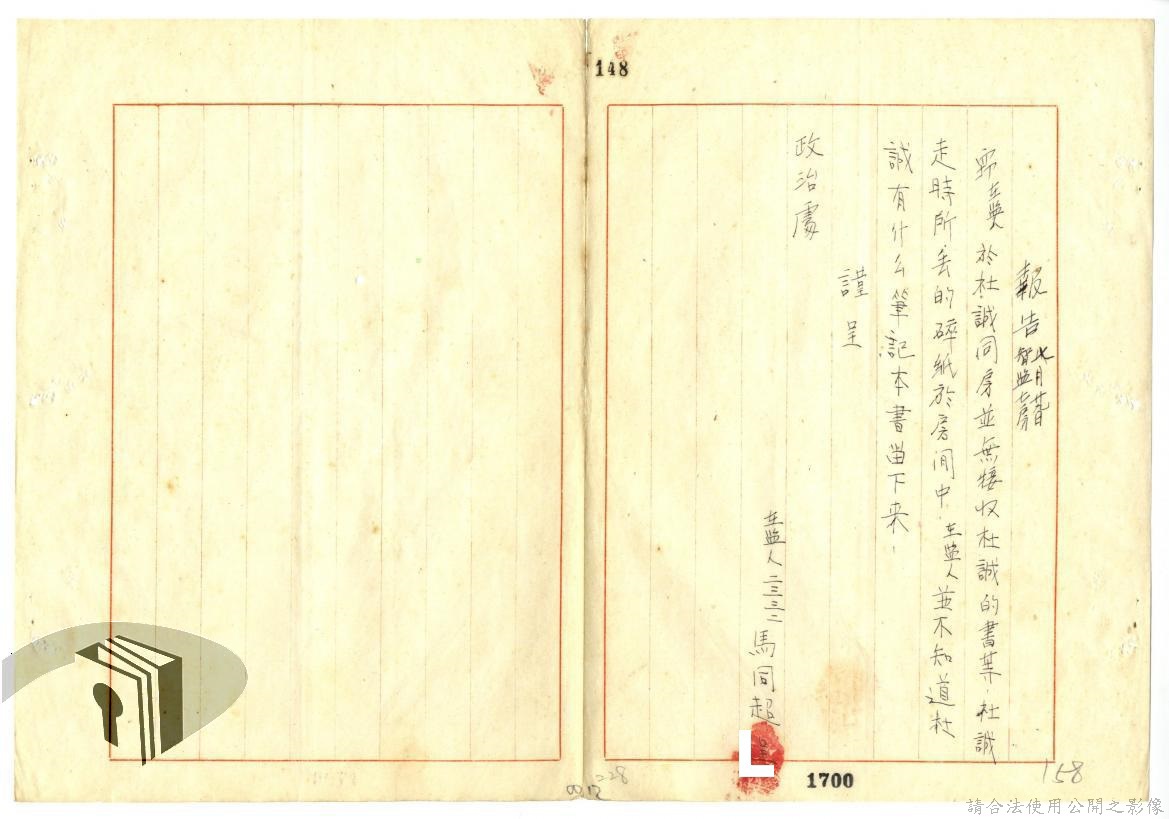 148
報告
七月廿
智監七房
在監人於杜誠同房並無接收杜誠的書 .杜誠
走時所丢的碎紙於房间中.在監人並不知道杜
誠有什么筆記本書畄下来.
謹呈
政治處
在監人二三三二 馬同超
1700
158
228
請合法使用公開之影像